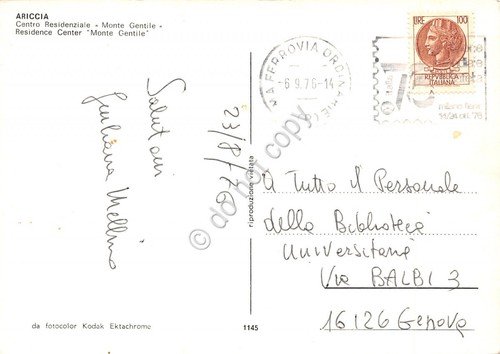 ARICCIA
Centro Residenziale - Monte Gentile -
Residence Center "Monte Gentile"
LIRE 100
REPVBBLICA
ITALIANA
FERROVIA
-6.9.76-14
Saluti
Giuliana Mellino
23/8/76
riproduzione vietata
do not copy
A Tutto il Personale
della Biblioteca
Universitaria
Via BALBI 3
16126 Genova
da fotocolor Kodak Ektachrome
1145